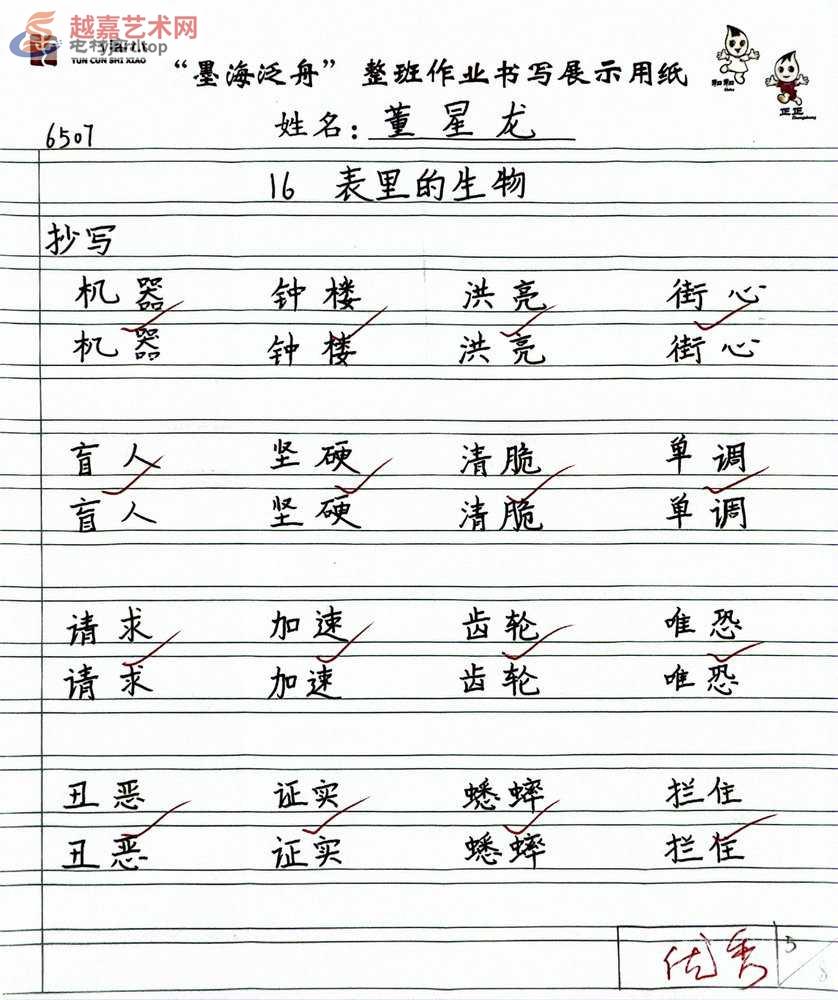 越嘉艺术网
yjart.top
YUN CUN SHI XIAO
“墨海泛舟” 整班作业书写展示用纸
和和
正正
6507
姓名：董星龙
16 表里的生物
抄写
机器 钟楼 洪亮 街心
机器 钟楼 洪亮 街心
盲人 坚硬 清脆 单调
盲人 坚硬 清脆 单调
请求 加速 齿轮 唯恐
请求 加速 齿轮 唯恐
丑恶 证实 蟋蟀 拦住
丑恶 证实 蟋蟀 拦住
优秀 5
8